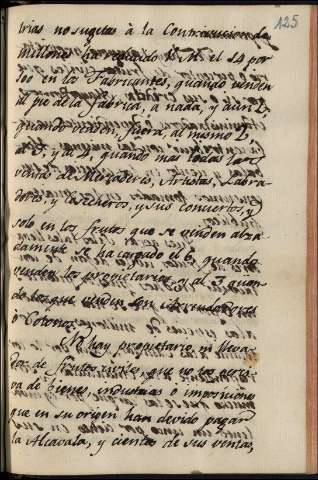 125
trias no sugetas à la Contribucion de
millones ha reglado S. M. el 14 por
100 en los Fabricantes, quando venden
al pie de la fabrica, a nada, y aun
quando venden fuera, al mismo 2
y al 4, quando mas todas las
ventas de Mercaderes, Artistas, Labra
dores, y Cosecheros, y sus conciertos, y
solo en los frutos que se venden alza
damente se ha cargado el 6, quando
venden los propietarios, y al 3 quan
do los que venden son Arrendadores
ò Colonos.
No hay propietario, ni lleva
dor de frutos civiles, que no los peri
va de bienes, industrias ò imposiciones
que en su origen han devido pagar
la Alcavala, y cientos de sus ventas,